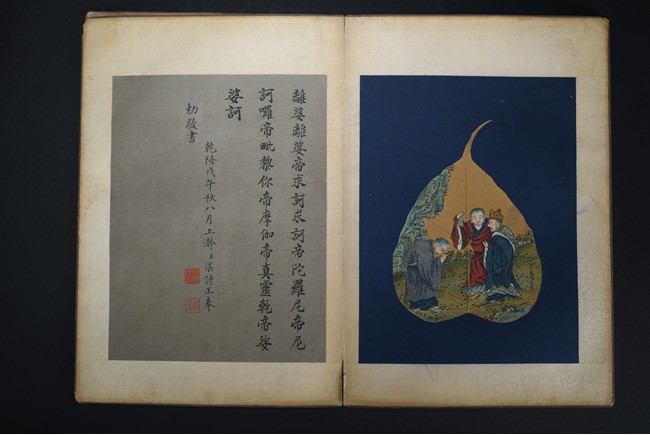 離婆離婆帝求訶求訶帝陀羅尼帝尼
訶囉帝毗黎你帝摩伽帝真靈乾帝娑
婆訶
乾隆戊午秋八月上澣臣梁詩正奉
勅敬書